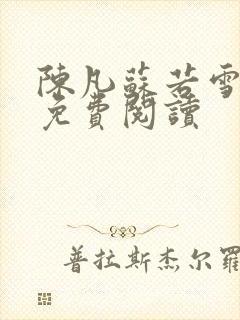 陳凡蘇若雪
免費閱讀
普拉斯杰尔羅